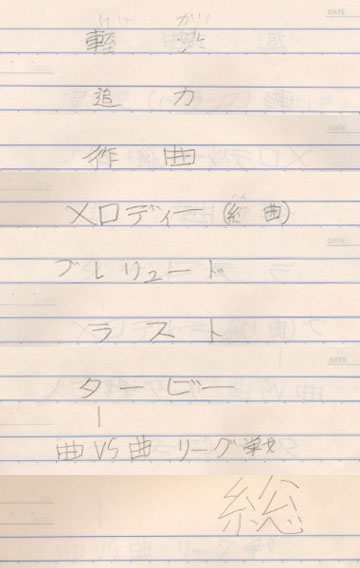 DATE
軽
追 力
DATE
作 曲
メロディー (曲)
DATE
プレリュード
ラスト
DATE
タービー
曲 VS 曲 リーグ戦
総